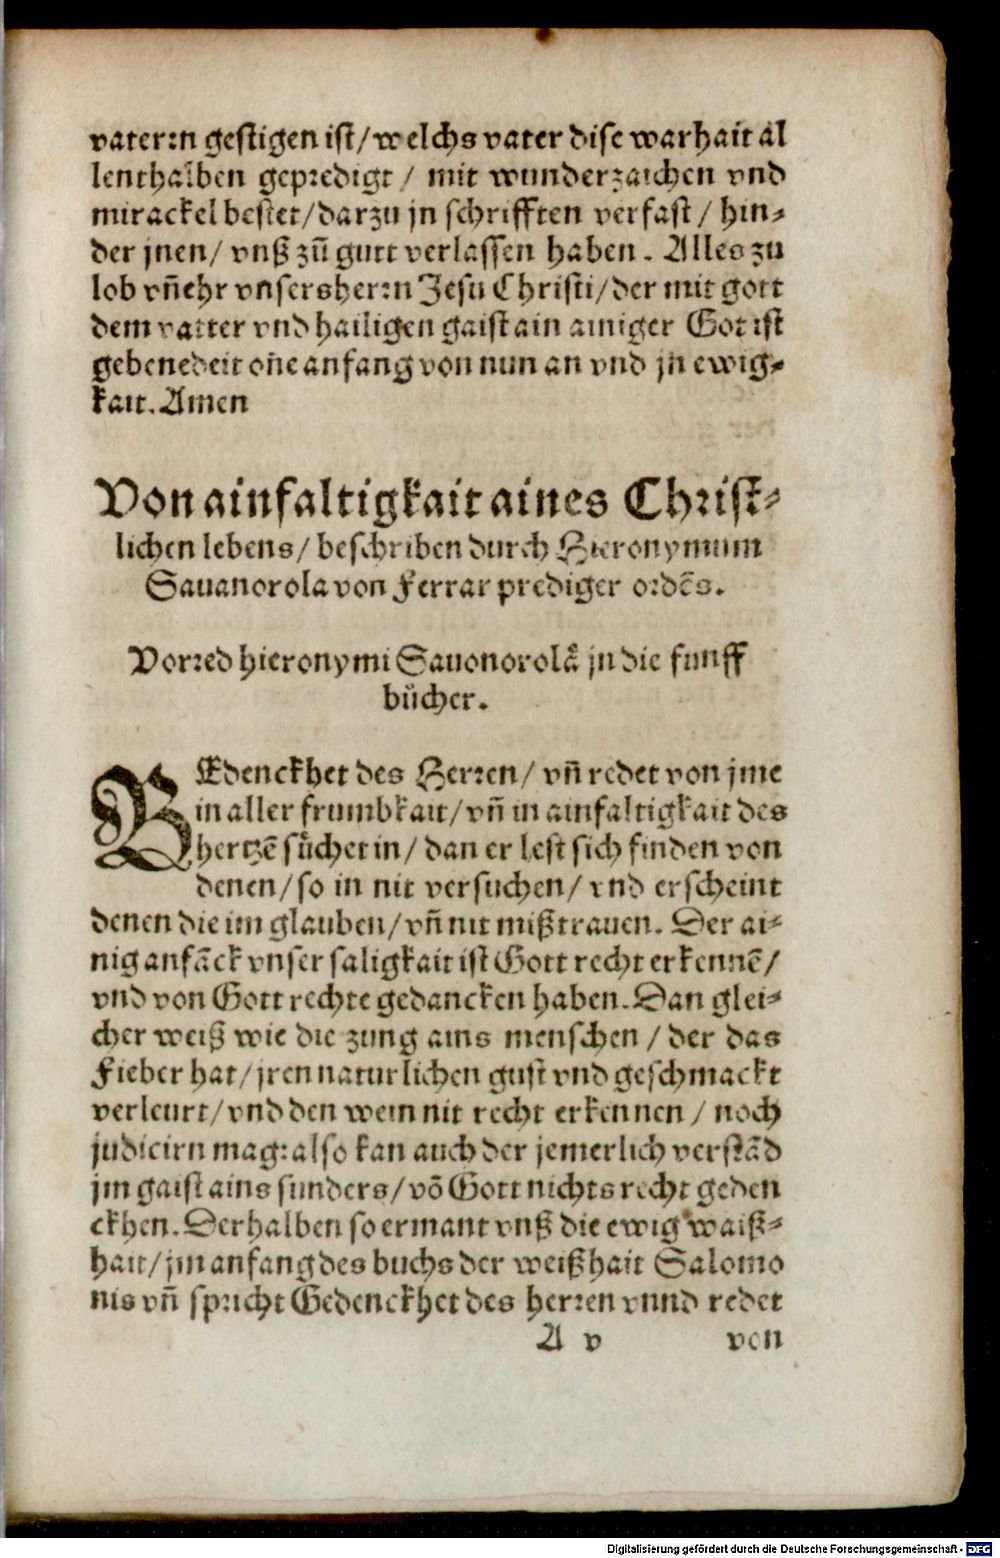 vatern gestigen ist/welchs vater dise warhait al
lenthalben gepredigt/ mit wunderzaichen vnd
mirackel bestet/darzu jn schrifften verfast/ hin⸗
der jnen/ vnß zů gutt verlassen haben. Alles zu
lob vñ ehr vnsersherrn Jesu Christi/der mit gott
dem vatter vnd hailigen gaist ain ainiger Got ist
gebenedeit oñe anfang von nun an vnd jn ewig⸗
kait. Amen
Von ainfaltigkait aines Christ⸗
lichen lebens/ beschriben durch Hieronymum
Sauanorola von Ferrar prediger ordẽs.
Vorred hieronymi Sauonorolã jn die funff
bůcher.
BEdenckhet des Herren/ vñ redet von jme
in aller frumbkait/ vñ in ainfaltigkait des
hertzẽ sůchet in/ dan er lest sich finden von
denen/ so in nit versuchen/ vnd erscheint
denen die im glauben/ vñ nit mißtrauen. Der ai⸗
nig anfãck vnser saligkait ist Gott recht erkennẽ/
vnd von Gott rechte gedancken haben. Dan glei⸗
cher weiß wie die zung ains menschen / der das
Fieber hat/ jren naturlichen gust vnd geschmackt
verleurt/ vnd den wein nit recht erkennen / noch
judicirn mag: also kan auch der jemerlich verstãd
jm gaist ains sunders/ võ Gott nichts recht geden
ckhen. Derhalben so ermant vnß die ewig waiß⸗
hait/ jm anfang des buchs der weißhait Salomo
nis vñ spricht Gedenckhet des herren vnnd redet
A v von
Digitalisierung gefördert durch die Deutsche Forschungsgemeinschaft - DFG